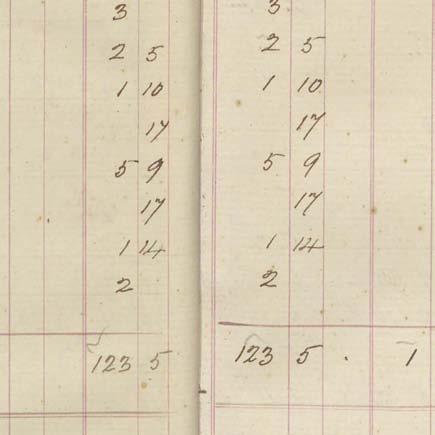 3 3
2 5 2 5
1 10 1 10
17 17
5 9 5 9
17 17
1 14 1 14
2 2
123 5 123 5 . 1